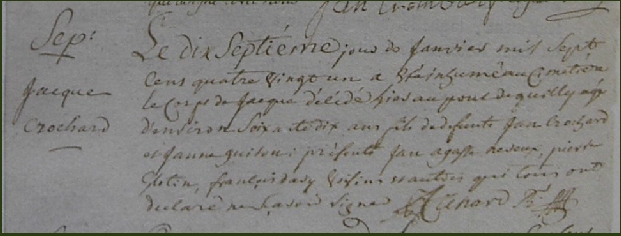 Sep:
Jacque
Crochard
Le dix Septiéme jour de Janvier mil Sept
Cens quatre Vingt un a Eté inhumé au Cimetiere
le Corps de Jacque décédé hier au pont de quilly agé
d'environ Soixante dix ans fils de defunts Jan Crochard
et Janne guiton: présents Jan agasse neveux, pierre
Glotin, françois Voisins et autres qui tous ont
declaré ne Scavoir Signer